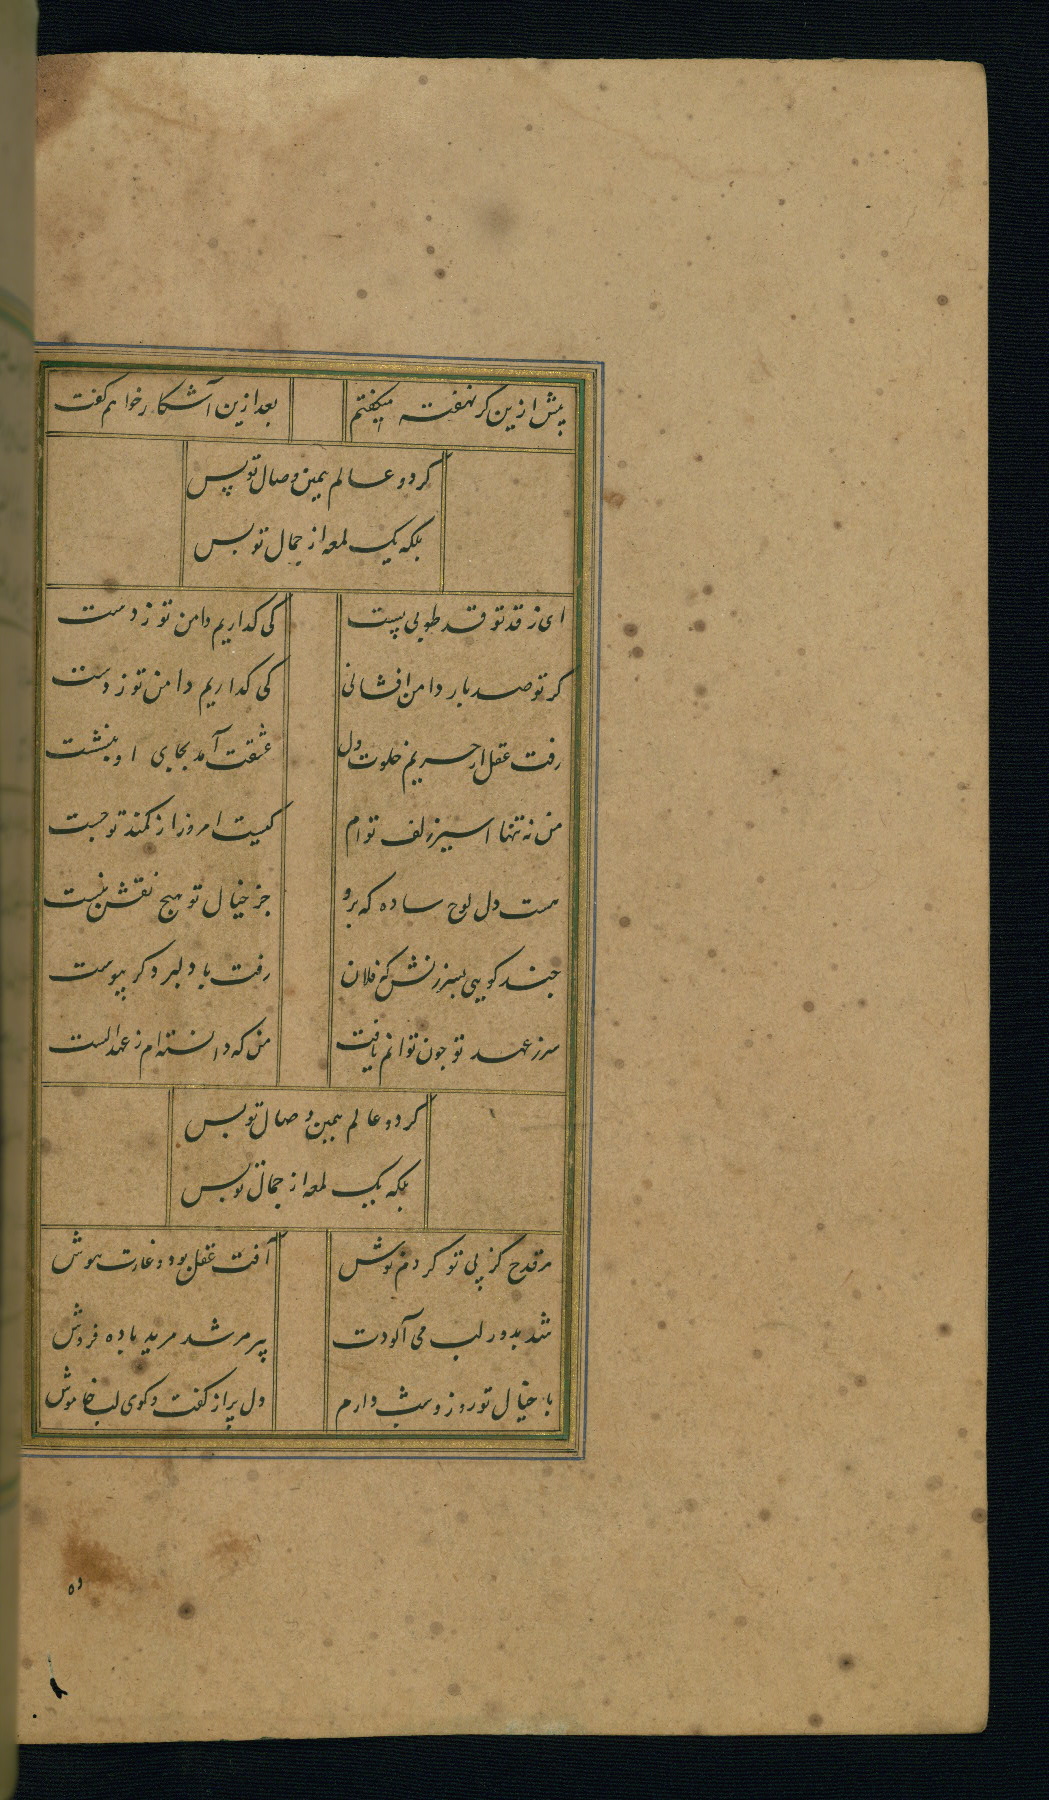 پیش ازین گر نهفته میگفتم بعد ازین آشکار خواهم گفت
کر دو عالم یمین وصال تو بس
بلکه یک لمعه از جمال تو بس
ای ز قد تو قد طوبی پست کی کذاریم دامن تو ز دست
کر تو صد بار دامن افشانی کی کذاریم دامن تو ز دست
رفت عقل از حریم خلوت دل عشقت آمد بجای او بنشست
من نه تنها اسیر زلف توام کیست امروز از کمند تو جست
هست دل لوح ساده که برو جز خیال تو هیچ نقش نبست
جند کویی بسرزنش کز فلان رفت با دلبر دکر پیوست
سر ز عهد تو جون توانم تافت من که دانسته‌ام ز عهد الست
کر دو عالم یمین وصال تو بس
بلکه یک لمعه از جمال تو بس
هر قدح کز پی تو کردم نوش آفت عقل بود و غارت هوش
شد بدور لب می آلودت پیر مرشد مرید باده فروش
با خیال تو روز و شب دارم دل پر از کفت و کوی لب خاموش